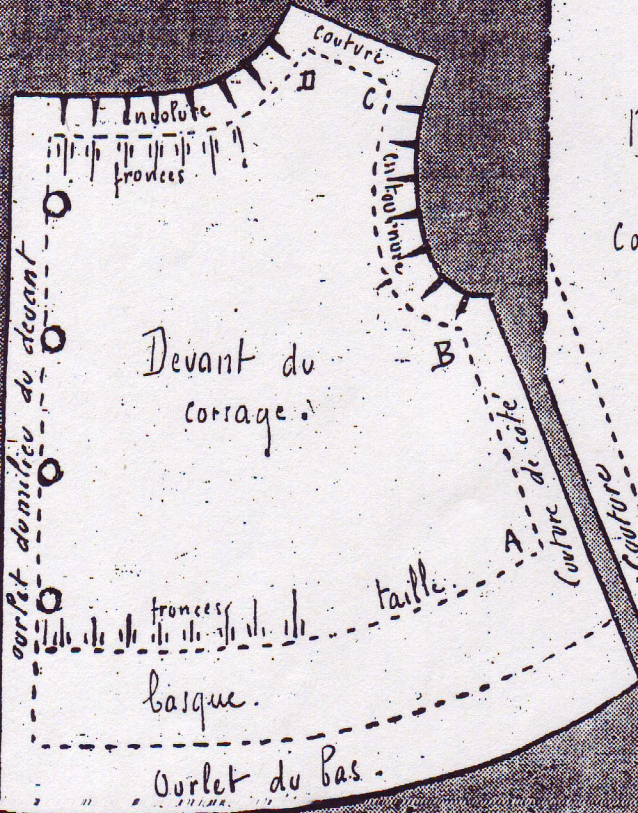 couture
D
C
Encolure
fronces
entournure
ourlet du milieu du devant
Devant du
corsage.
B
couture de côté
A
couture
taille.
fronces
basque.
Ourlet du bas.